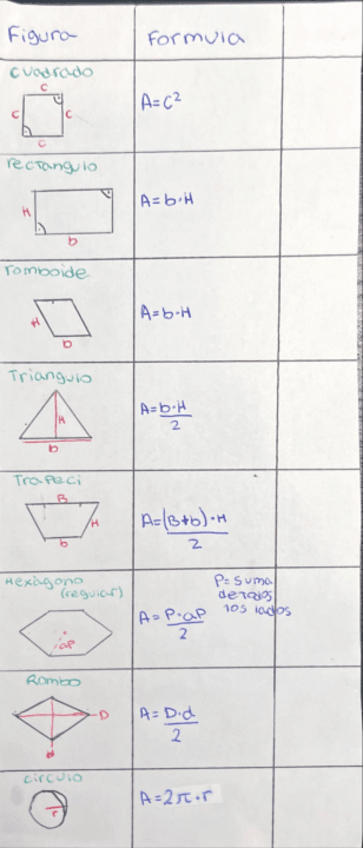 Figura Formula
cuadrado
c
c c
c
A=c²
rectangulo
H
b
A=b·H
romboide
H
b
A=b·H
Triangulo
H
b
A=b·H
2
Trapeci
B
H
b
A=(B+b)·H
2
Hexàgono
(regular)
ap
A=P·aP
2
P=suma
de todos
los lados
Rombo
D
d
A=D·d
2
circulo
r
A=2π·r